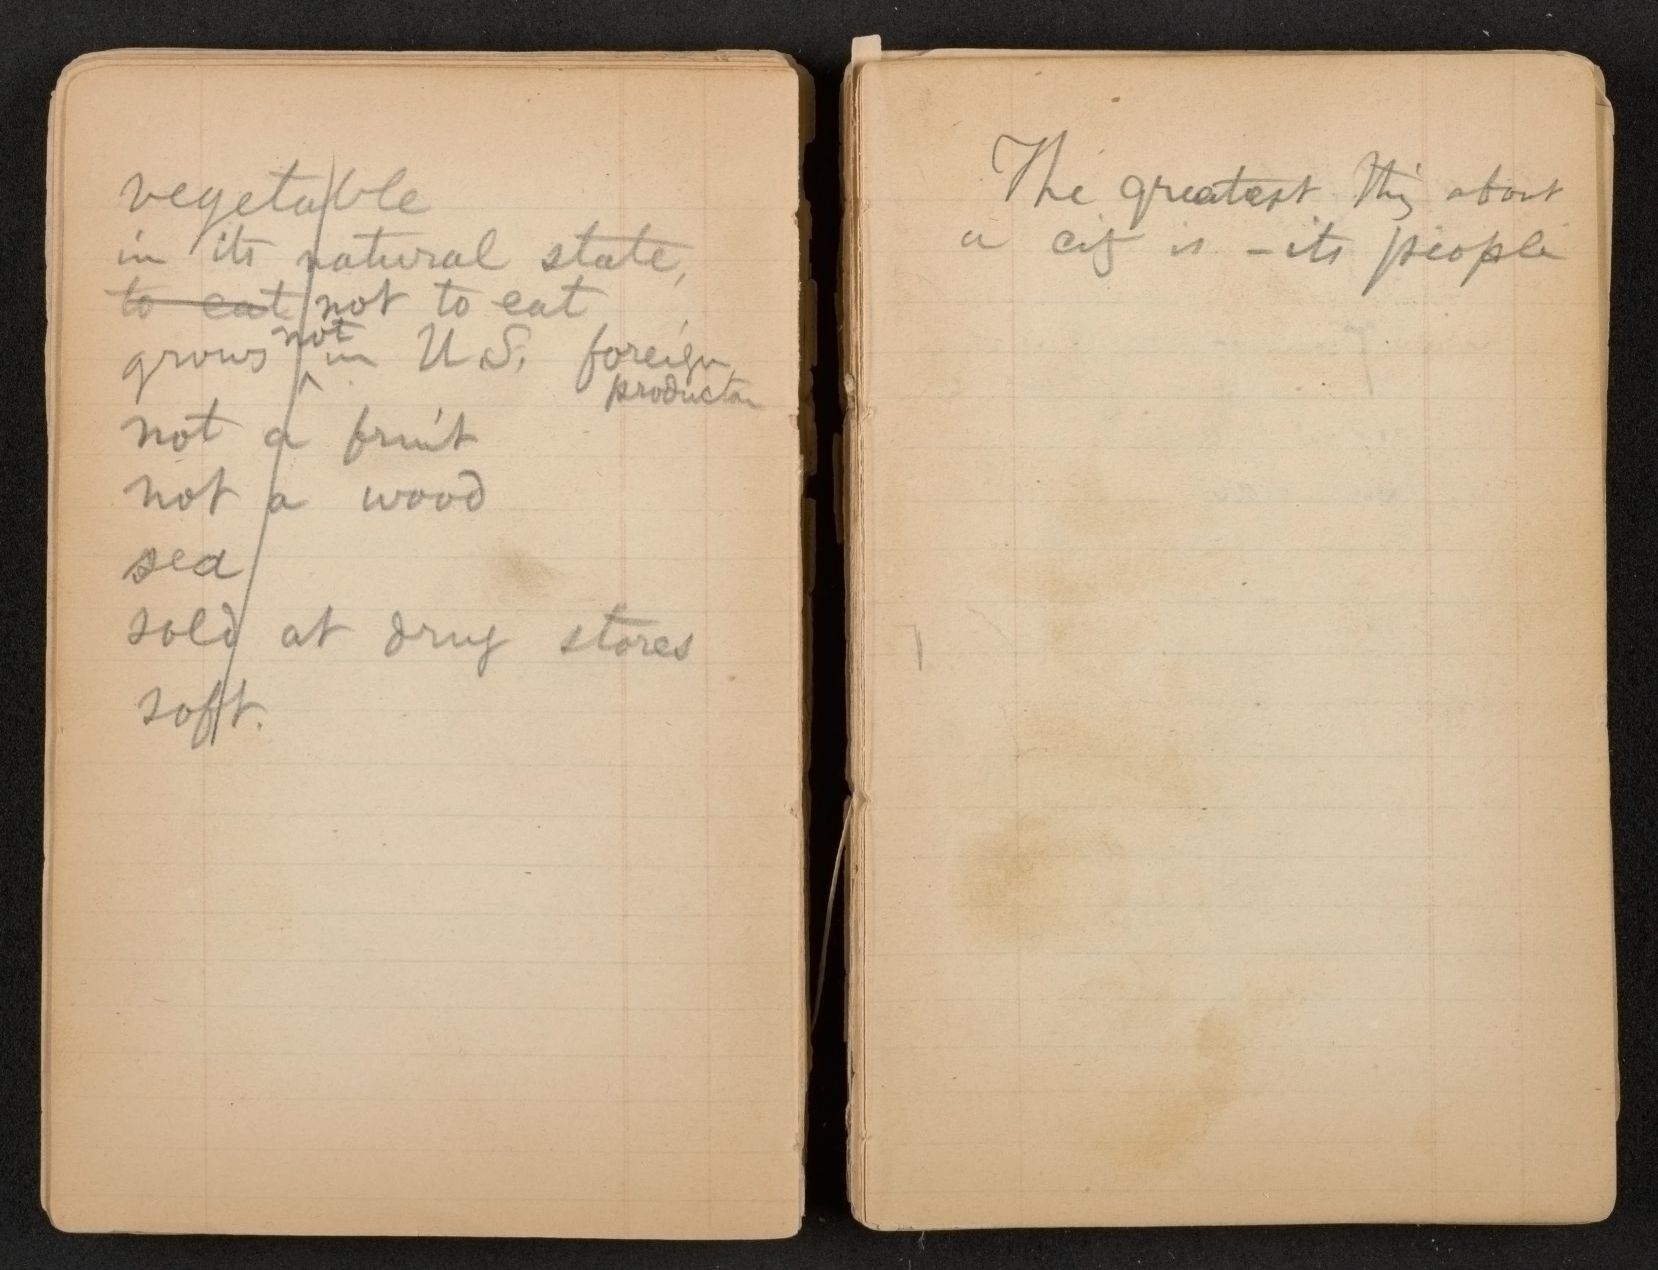 vegetable
in its natural state,
to eat not to eat
grows not in U.S. foreign
production
not a fruit
not a wood
sea
sold at drug stores
soft.
The greatest thing about
a city is - its people